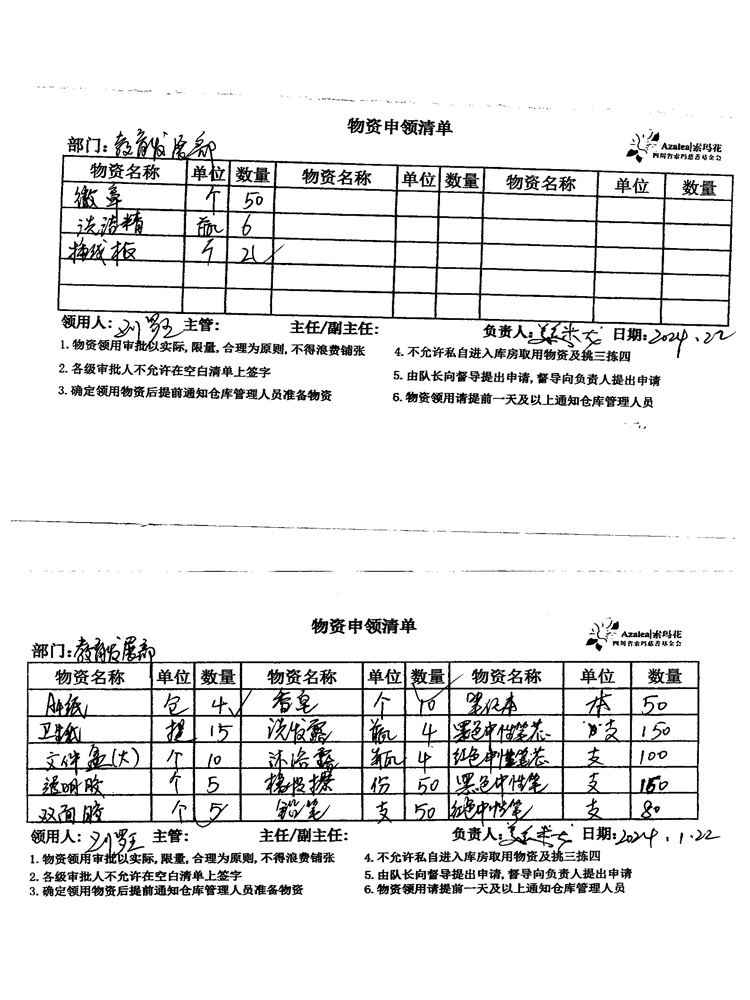 物资申领清单
部门:教育发展部
Azalea|索玛花
四川省索玛慈善基金会
物资名称 单位 数量 物资名称 单位 数量 物资名称 单位 数量
徽章 个 50
洗洁精 瓶 6
插线板 个 21
领用人: 主管: 主任/副主任: 负责人: 日期:2024.22
1.物资领用审批以实际,限量,合理为原则,不得浪费铺张
4.不允许私自进入库房取用物资及挑三拣四
2.各级审批人不允许在空白清单上签字
5.由队长向督导提出申请,督导向负责人提出申请
3.确定领用物资后提前通知仓库管理人员准备物资
6.物资领用请提前一天及以上通知仓库管理人员
物资申领清单
部门:教育发展部
Azalea|索玛花
四川省索玛慈善基金会
物资名称 单位 数量 物资名称 单位 数量 物资名称 单位 数量
A4纸 包 4 香皂 个 10 笔记本 本 50
卫生纸 提 15 洗发露 瓶 4 黑色中性笔芯 支 150
文件盒(大) 个 10 沐浴露 瓶 4 红色中性笔芯 支 100
透明胶 个 5 橡皮擦 份 50 黑色中性笔 支
双面胶 个 5 铅笔 支 50 红色中性笔 支 80
领用人: 主管: 主任/副主任: 负责人: 日期:2024.1.22
1.物资领用审批以实际,限量,合理为原则,不得浪费铺张
4.不允许私自进入库房取用物资及挑三拣四
2.各级审批人不允许在空白清单上签字
5.由队长向督导提出申请,督导向负责人提出申请
3.确定领用物资后提前通知仓库管理人员准备物资
6.物资领用请提前一天及以上通知仓库管理人员